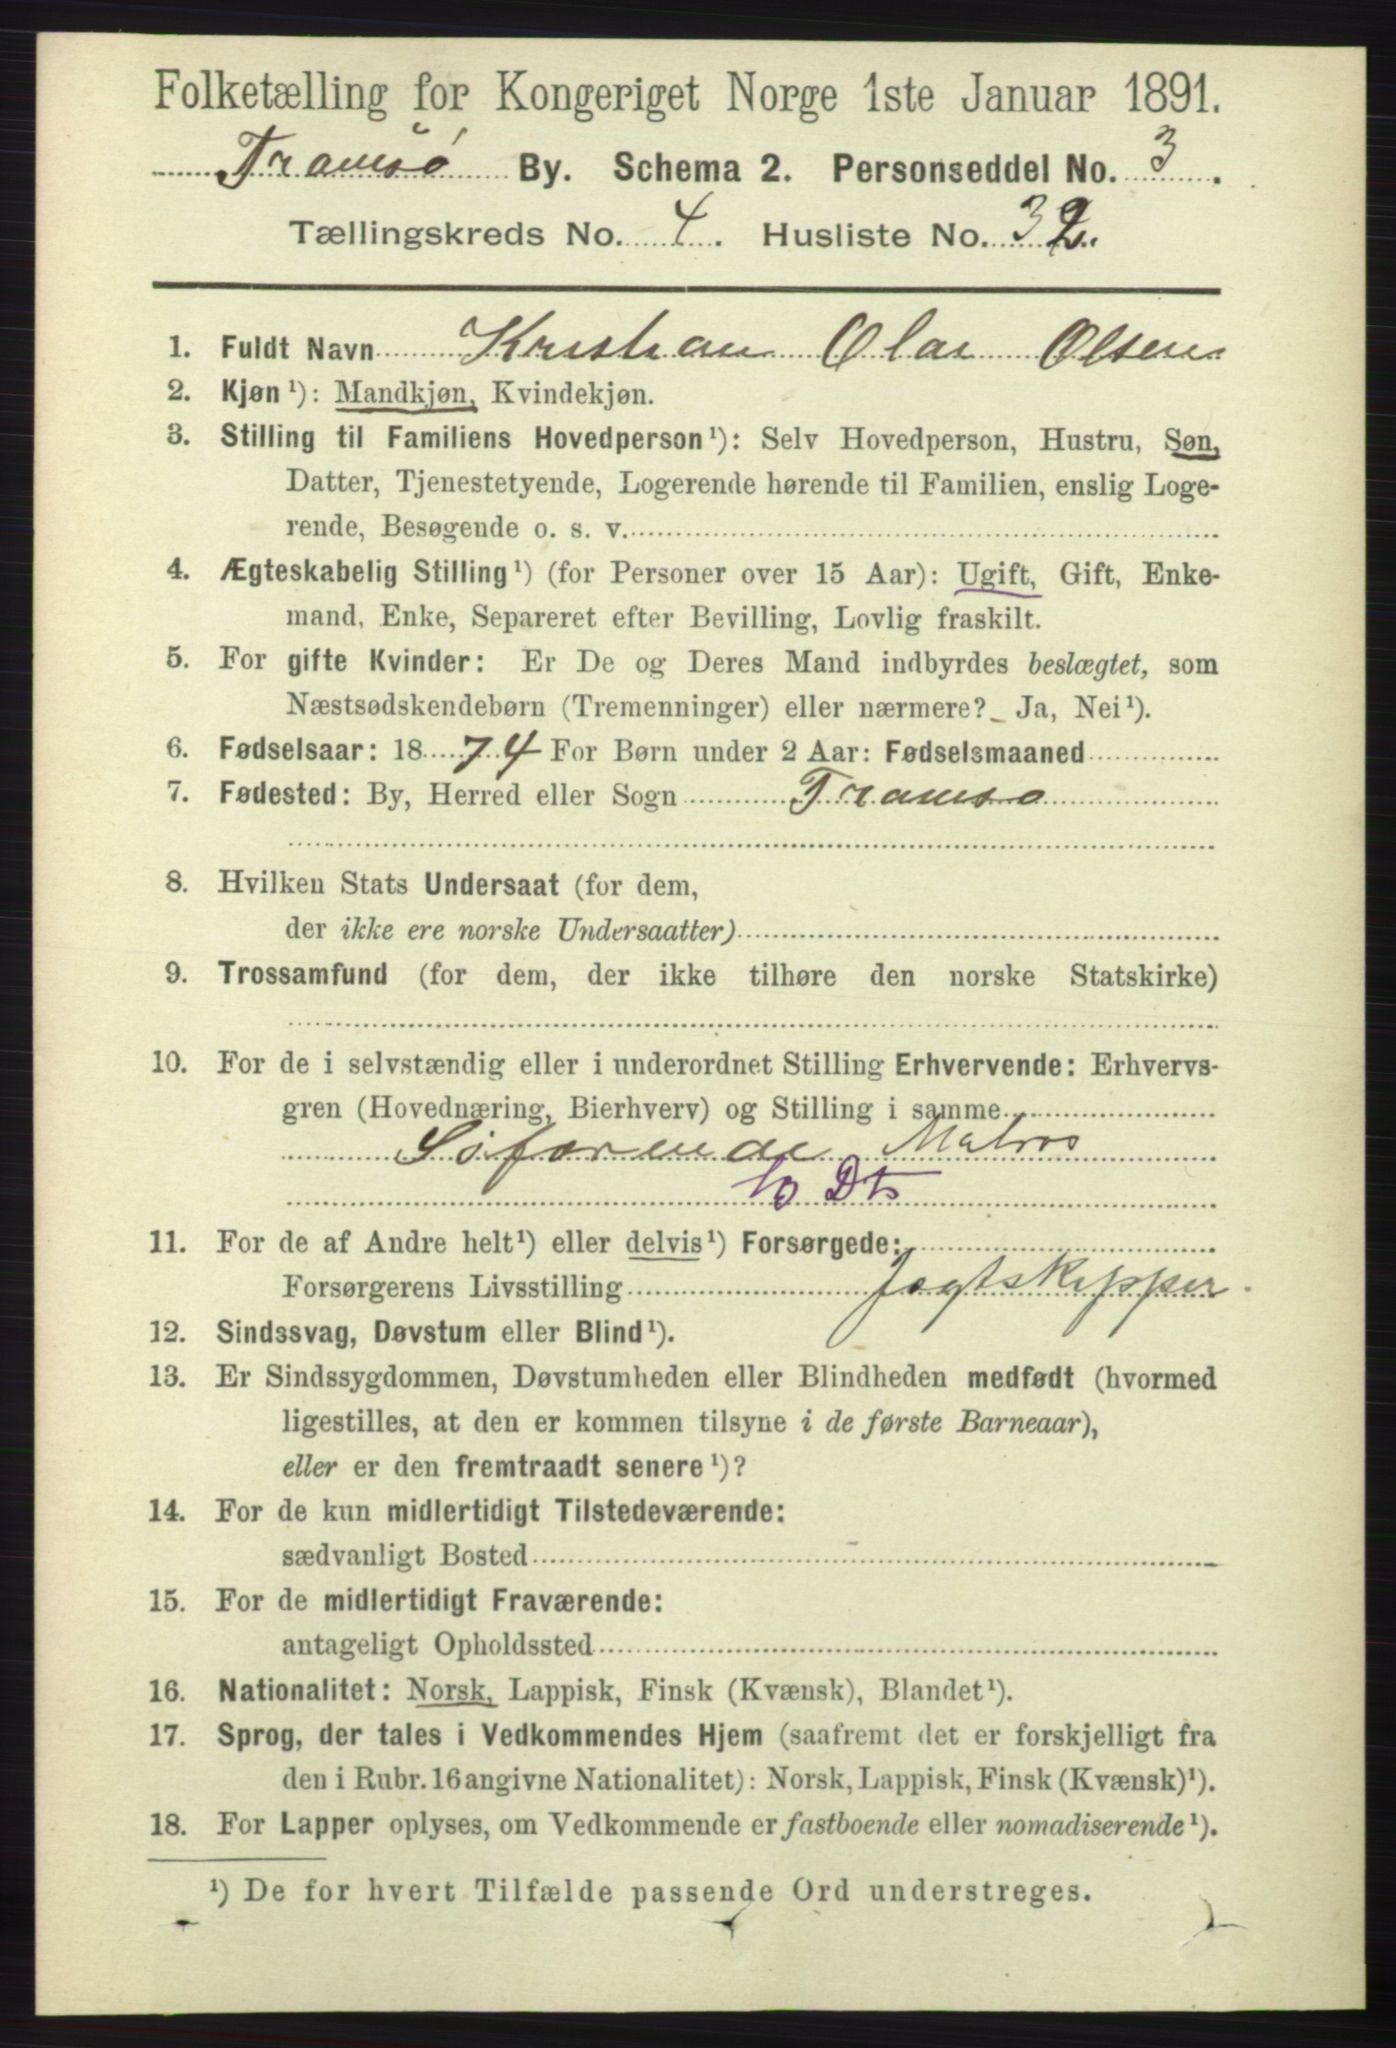 Folketælling for Kongeriget Norge 1ste Januar 1891.
Tromsö By. Schema 2. Personseddel No. 3.
Tællingskreds No. 4. Husliste No. 32.
1. Fuldt Navn Kristian Olai Olsen
2. Kjøn ¹): Mandkjøn, Kvindekjøn.
3. Stilling til Familiens Hovedperson ¹): Selv Hovedperson, Hustru, Søn,
Datter, Tjenestetyende, Logerende hørende til Familien, enslig Loge-
rende, Besøgende o. s. v.
4. Ægteskabelig Stilling ¹) (for Personer over 15 Aar): Ugift, Gift, Enke-
mand, Enke, Separeret efter Bevilling, Lovlig fraskilt.
5. For gifte Kvinder: Er De og Deres Mand indbyrdes beslægtet, som
Næstsødskendebørn (Tremenninger) eller nærmere? Ja, Nei ¹).
6. Fødselsaar: 1874 For Børn under 2 Aar: Fødselsmaaned
7. Fødested: By, Herred eller Sogn Tromso
8. Hvilken Stats Undersaat (for dem,
der ikke ere norske Undersaatter)
9. Trossamfund (for dem, der ikke tilhøre den norske Statskirke)
10. For de i selvstændig eller i underordnet Stilling Erhvervende: Erhvervs-
gren (Hovednæring, Bierhverv) og Stilling i samme
Söfarende Matros
11. For de af Andre helt ¹) eller delvis ¹) Forsørgede:
Forsørgerens Livsstilling Jagtskipper.
12. Sindssvag, Døvstum eller Blind ¹).
13. Er Sindssygdommen, Døvstumheden eller Blindheden medfødt (hvormed
ligestilles, at den er kommen tilsyne i de første Barneaar),
eller er den fremtraadt senere ¹)?
14. For de kun midlertidigt Tilstedeværende:
sædvanligt Bosted
15. For de midlertidigt Fraværende:
antageligt Opholdssted
16. Nationalitet: Norsk, Lappisk, Finsk (Kvænsk), Blandet ¹).
17. Sprog, der tales i Vedkommendes Hjem (saafremt det er forskjelligt fra
den i Rubr. 16 angivne Nationalitet): Norsk, Lappisk, Finsk (Kvænsk) ¹).
18. For Lapper oplyses, om Vedkommende er fastboende eller nomadiserende ¹).
¹) De for hvert Tilfælde passende Ord understreges.